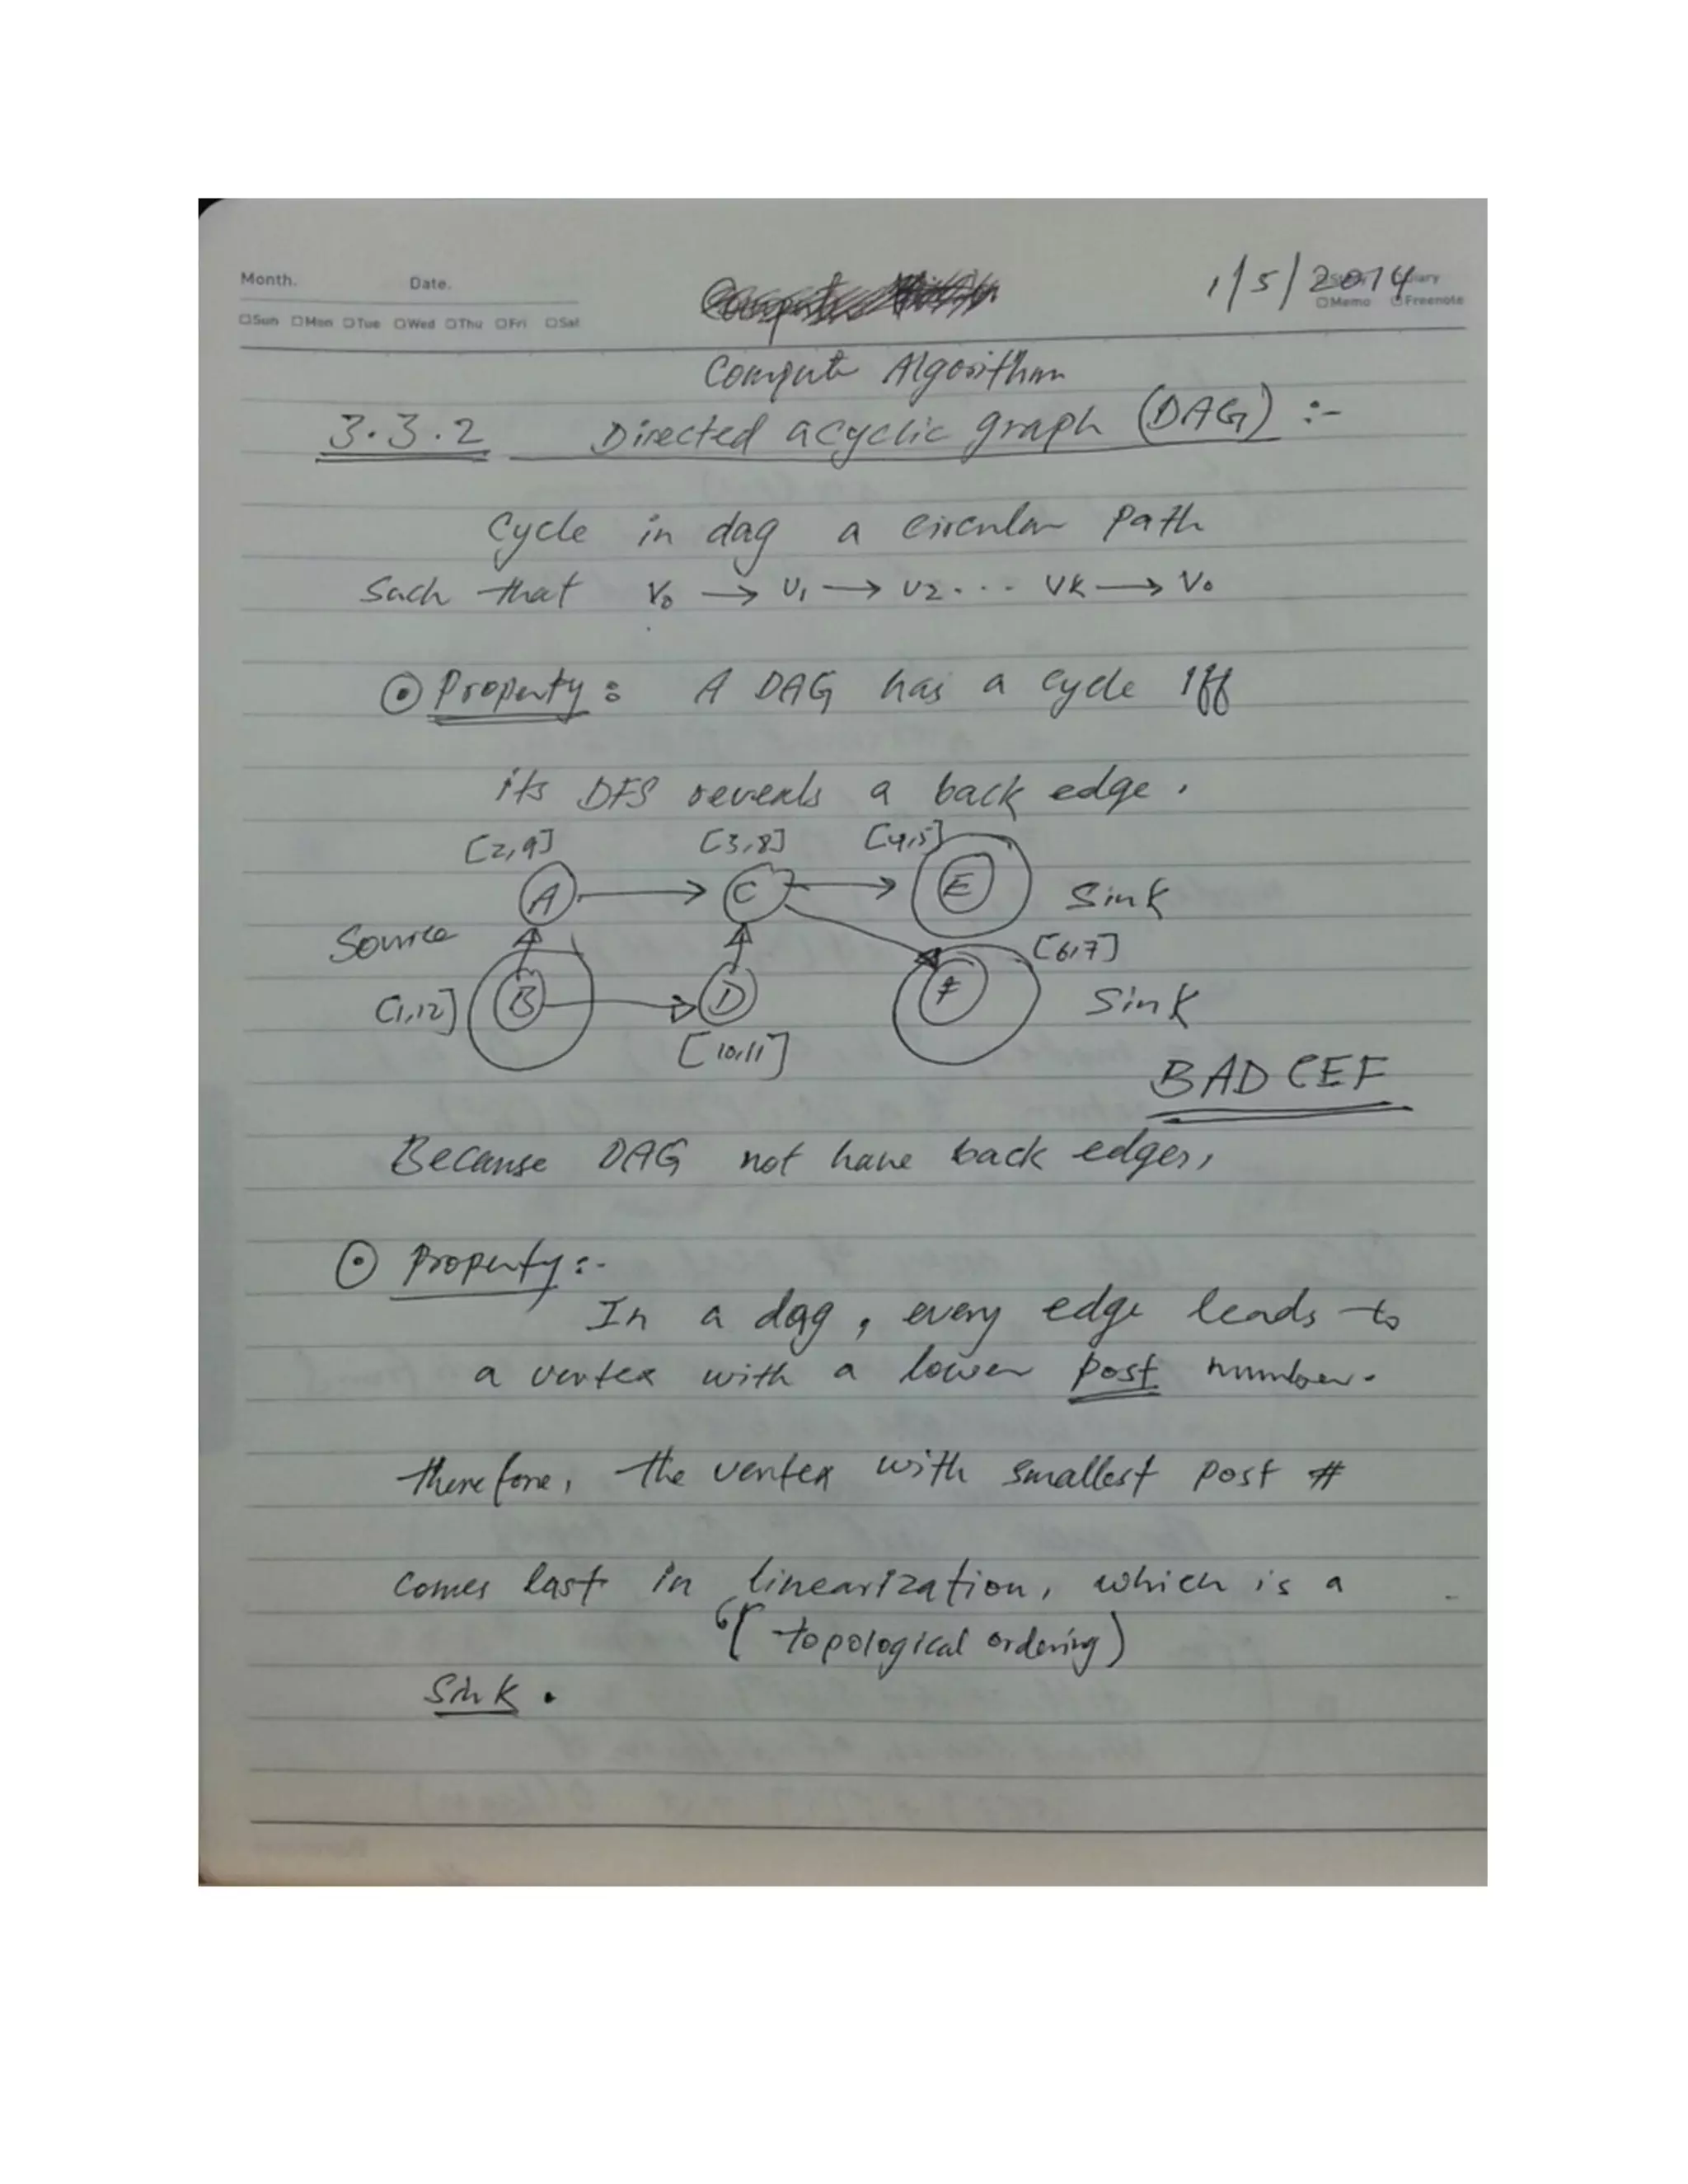 Month. Date.
1/5/2014
Sun Mon Tue Wed Thu Fri Sat
Memo Freenote
Compute Algorithm
3.3.2 Directed acyclic graph (DAG) :-
Cycle in dag a circular path
Such that V0 → U1 → U2 . . . VK → V0
⊙ Property : A DAG has a cycle iff
its DFS reveals a back edge.
[2,9] [3,8] [4,5]
A C E Sink
Source [6,7]
[1,12] B D F Sink
[10,11]
BADCEF
Because DAG not have back edges,
⊙ Property :-
In a dag, every edge leads to
a vertex with a lower post number.
therefore, the vertex with smallest post #
comes last in linearization, which is a
(topological ordering)
Sink.